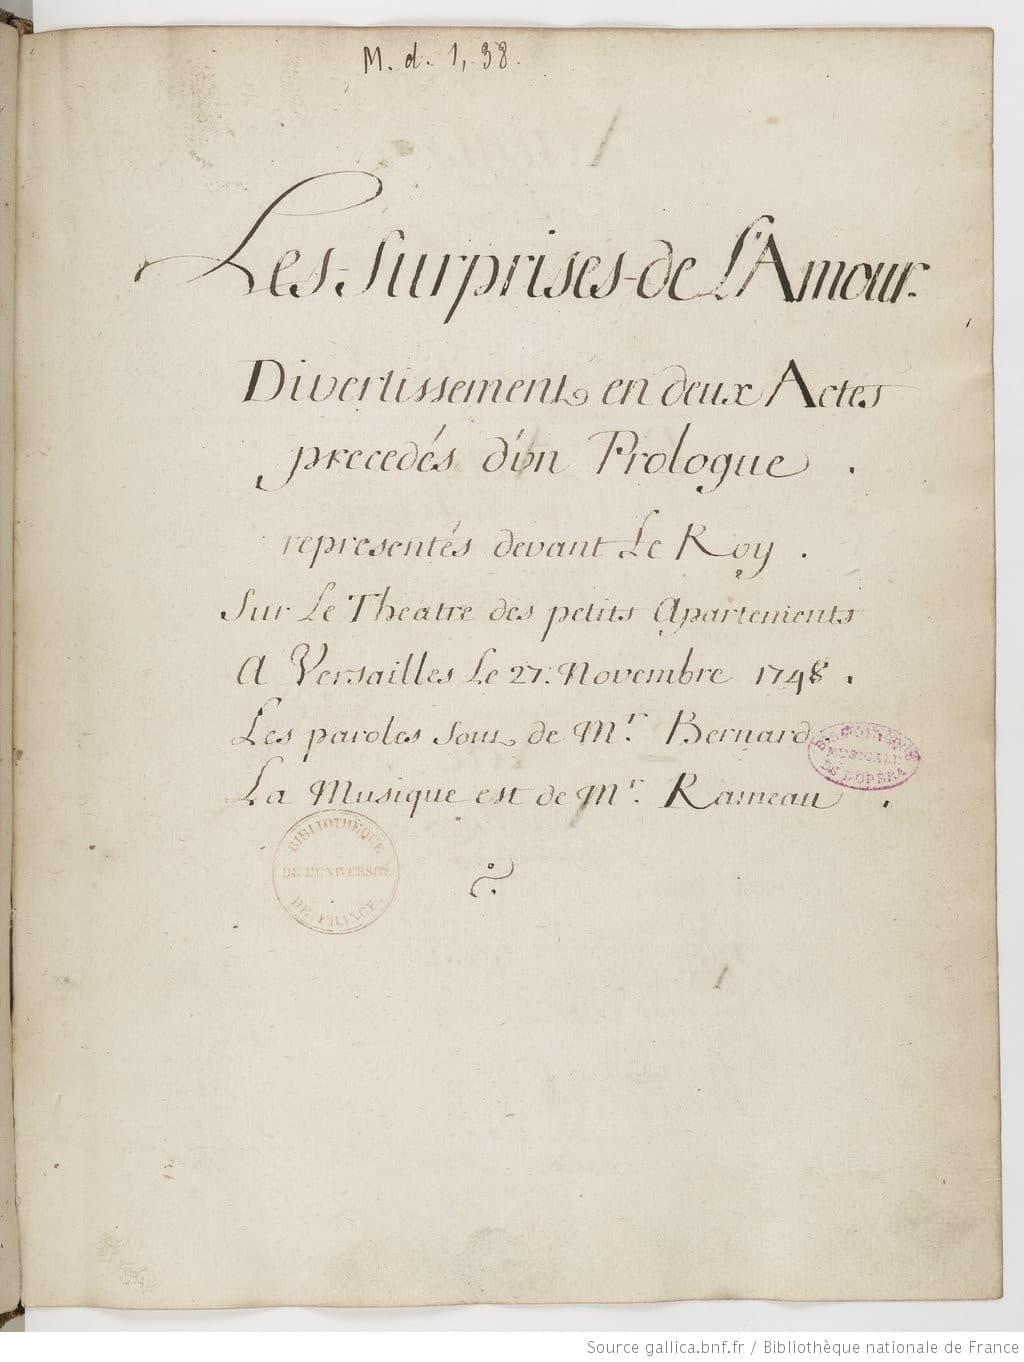 M. d. 1, 38.
Les Surprises de L'Amour.
Divertissement en deux Actes
precedés d'un Prologue .
representés devant Le Roy .
Sur Le Theatre des petits Apartements
A Versailles Le 27. Novembre 1748 .
Les paroles sont de Mr. Bernard
BIBLIOTHEQUE
MUSICALE
DE L'OPERA
La Musique est de Mr. Rameau .
BIBLIOTHÈQUE
DE L'UNIVERSITÉ
DE FRANCE.
Source gallica.bnf.fr / Bibliothèque nationale de France